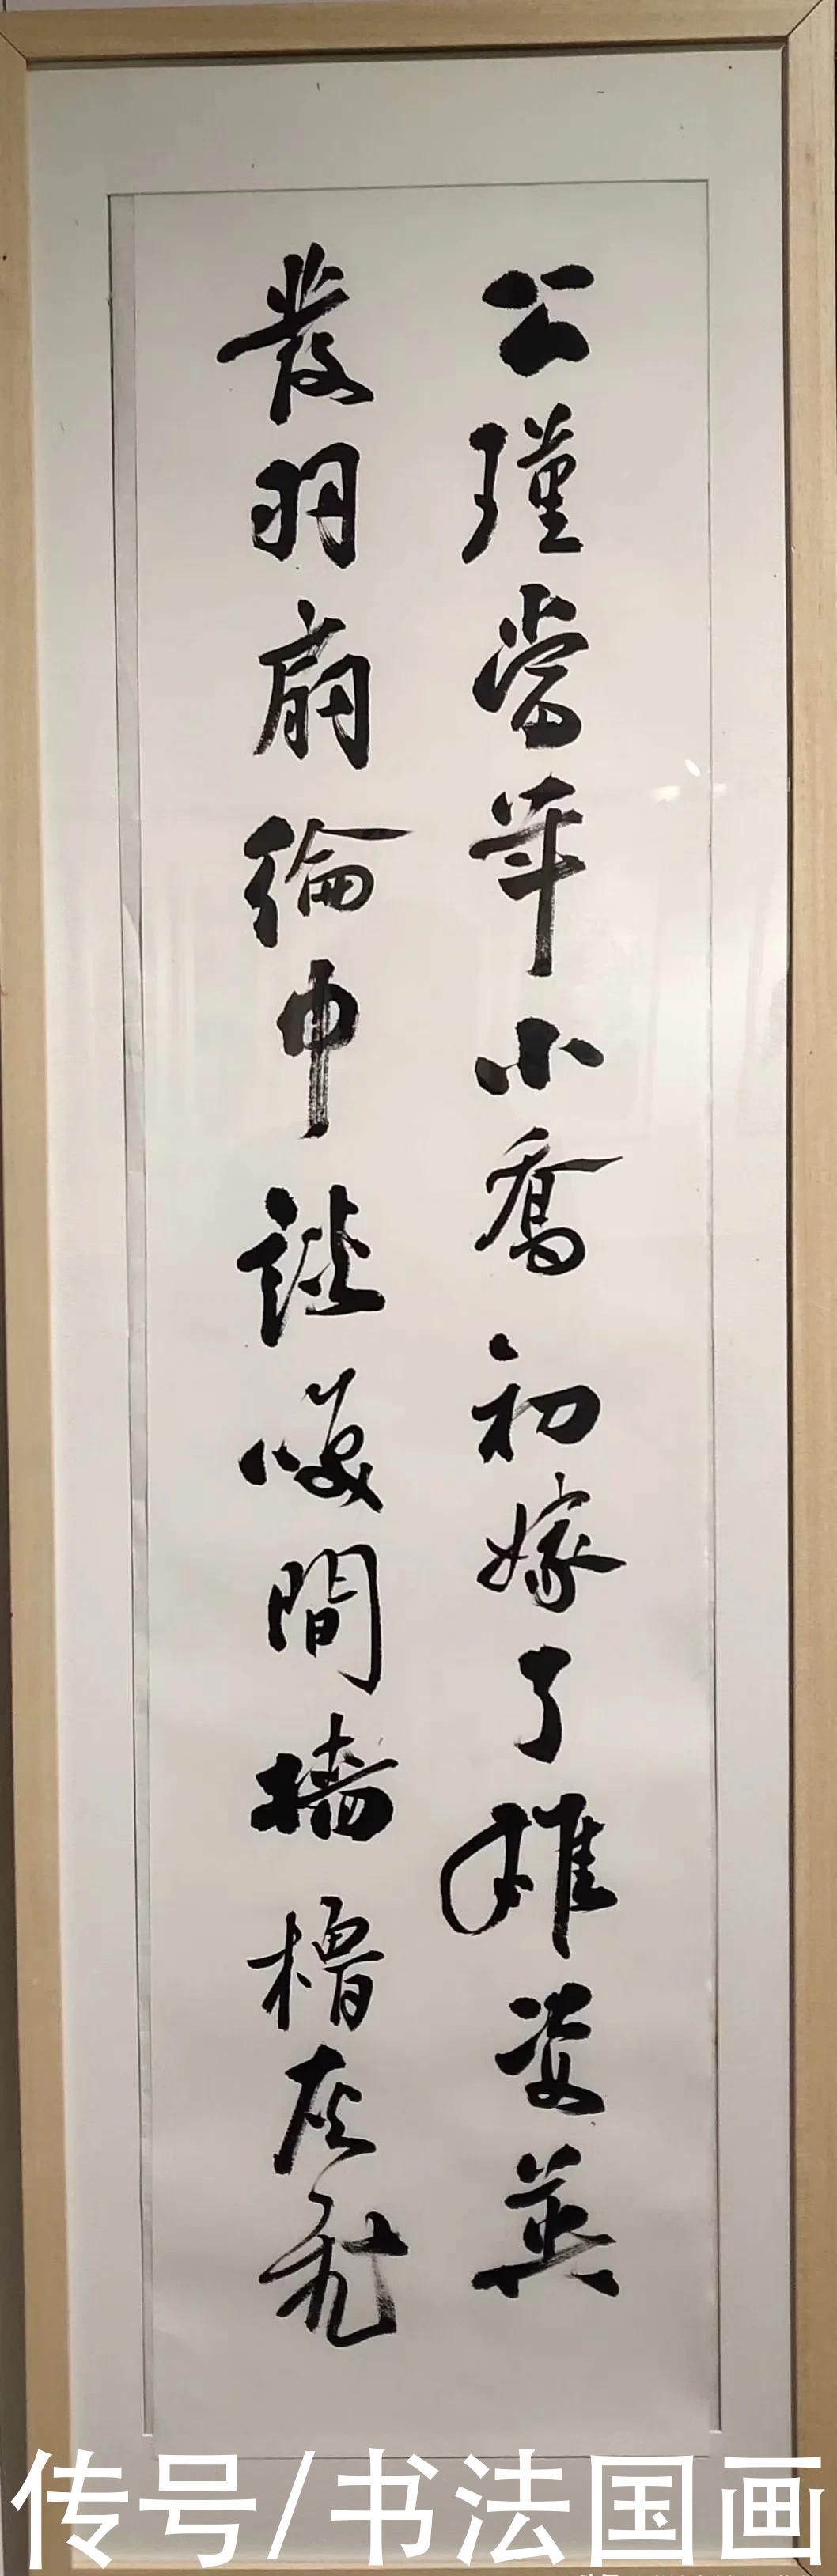 公瑾當年小喬初嫁了雄姿英
發羽扇綸巾談笑間墻櫓灰飛
传号/书法国画